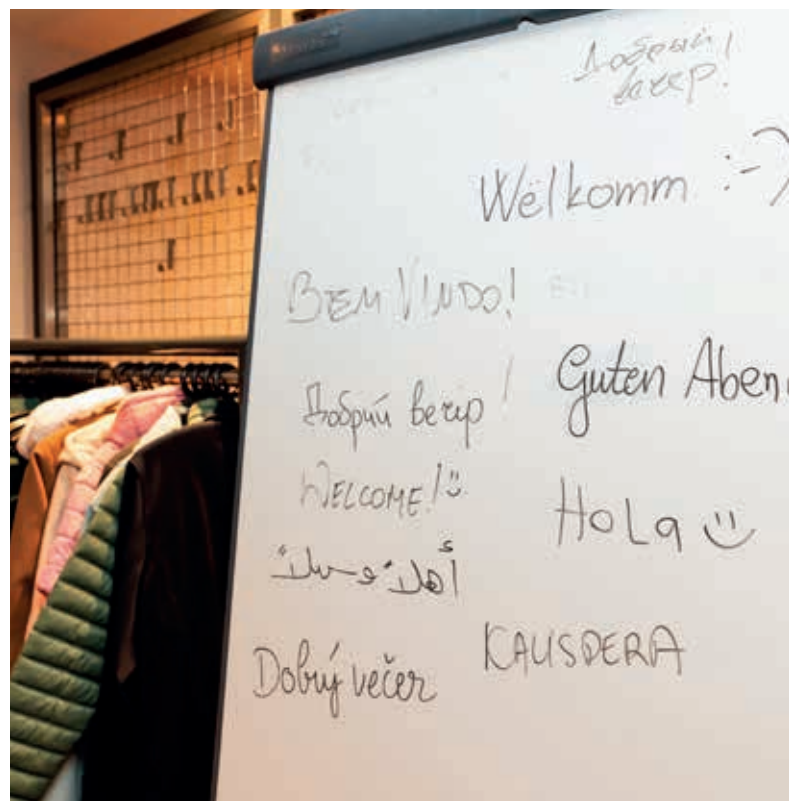 Добрый
вечер!
Wëlkomm :-)
BEM VINDO!
Guten Aben
Добрий вечір !
WELCOME! 😊
Hola 😊
أهلاً و سهلاً
KALISPERA
Dobrý večer